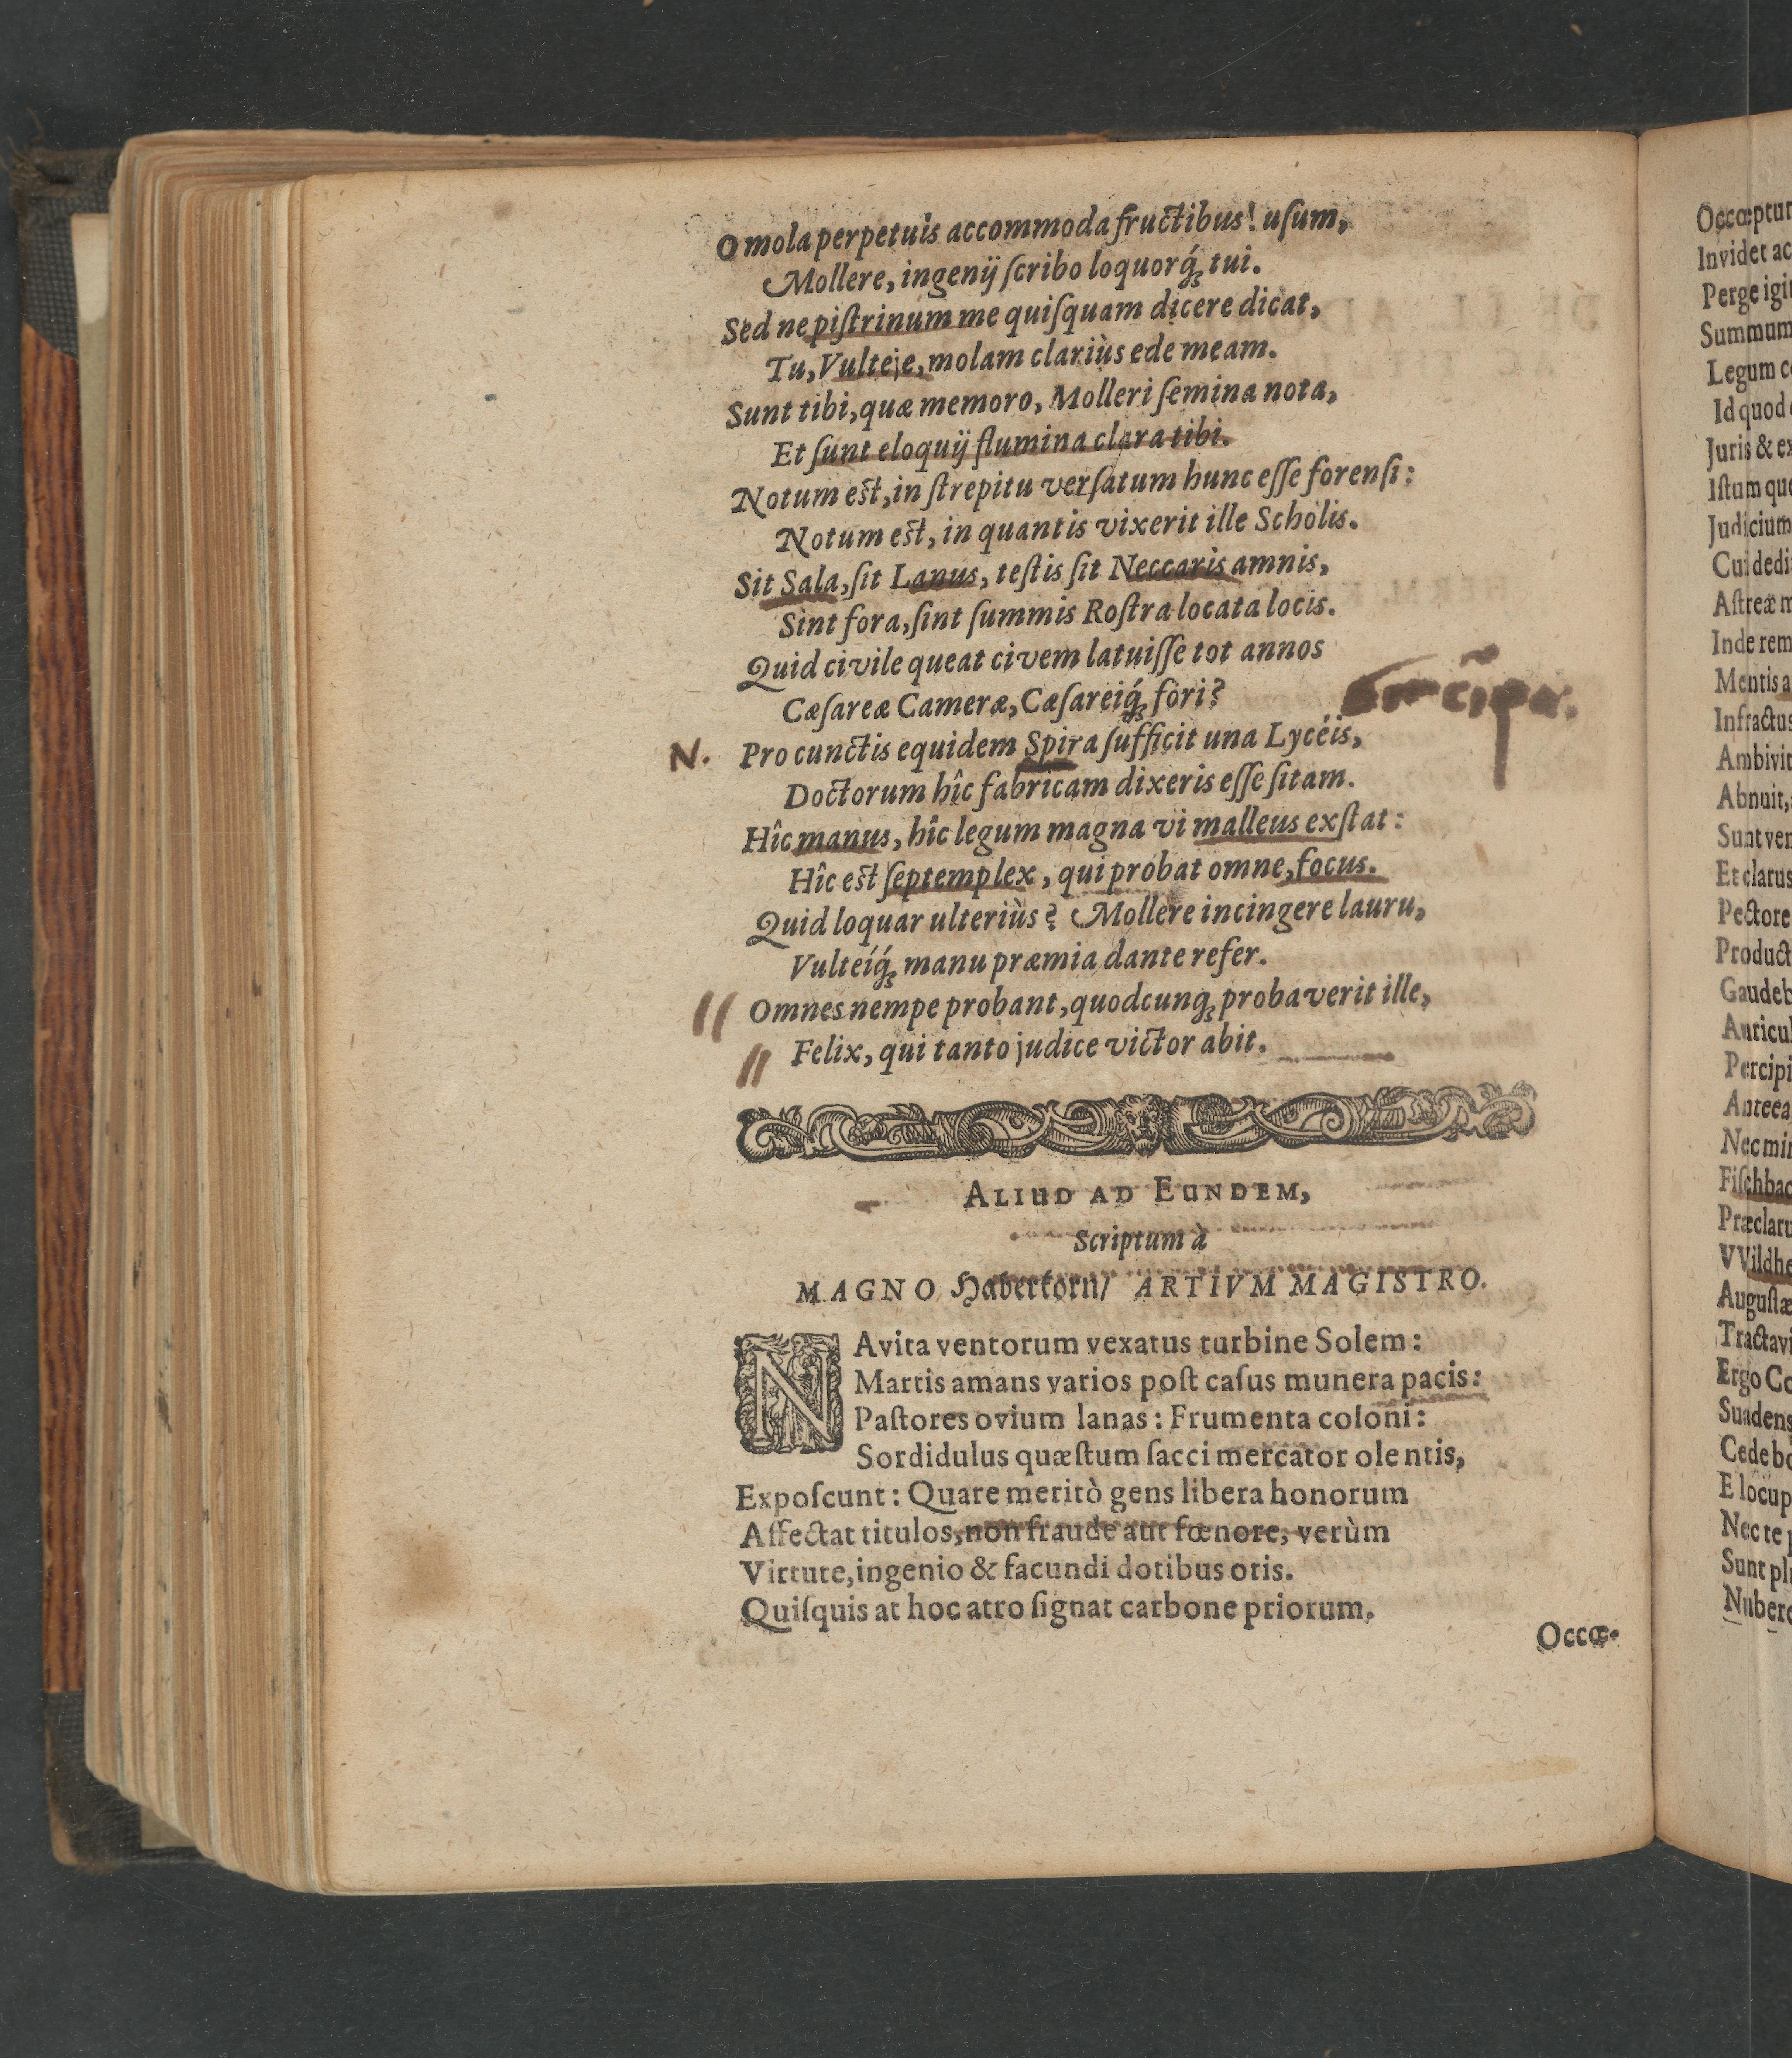 O mola perpetuis accommoda fructibus! uſum,
Mollere, ingenij ſcribo loquorq́ꝫ tui.
Sed ne piſtrinum me quiſquam dicere dicat,
Tu, Vulteje, molam clariùs ede meam.
Sunt tibi, quæ memoro, Molleri ſemina nota,
Et ſunt eloquij flumina clara tibi.
Notum eſt, in ſtrepitu verſatum hunc eſſe forenſi:
Notum eſt, in quantis vixerit ille Scholis.
Sit Sala, ſit Lanus, teſtis ſit Neccaris amnis,
Sint fora, ſint ſummis Roſtra locata locis.
Quid civile queat civem latuiſſe tot annos
Cæſareæ Cameræ, Cæſareiq́ꝫ fori?
N. Pro cunctis equidem Spira ſufficit una Lycéis,
Doctorum hîc fabricam dixeris eſſe ſitam.
Hîc manus, hîc legum magna vi malleus exſtat:
Hîc eſt ſeptemplex, qui probat omne, focus.
Quid loquar ulteriùs? Mollere incingere lauru,
Vulteíq́ꝫ manu præmia dante refer.
Omnes nempe probant, quodcunqꝫ probaverit ille,
Felix, qui tanto judice victor abit.
ALIUD AD EUNDEM,
Scriptum à
MAGNO Haberkorn/ ARTIVM MAGISTRO.
NAvita ventorum vexatus turbine Solem:
Martis amans varios poſt caſus munera pacis:
Paſtores ovium lanas: Frumenta coloni:
Sordidulus quæſtum ſacci mercator olentis,
Expoſcunt: Quare meritò gens libera honorum
Affectat titulos, non fraude aut fœnore, verùm
Virtute, ingenio & facundi dotibus oris.
Quiſquis at hoc atro ſignat carbone priorum,
Occœ-
Invidet ac
Perge igi
Summum
Legum c
Id quod
Juris & ex
Iſtum que
Judicium
Cui dedi
Aſtreæ m
Inde rem
Mentis a
Infractus
Ambivit
Abnuit,
Sunt ver
Et clarus
Pectore
Product
Gaudeb
Auricul
Percipi
Anteea
Nec mi
Fiſchbac
Præclaru
VVildhe
Auguſtæ
Tractavi
Ergo Co
Suadens
Cede bo
E locup
Nec te p
Sunt pl
Nubere